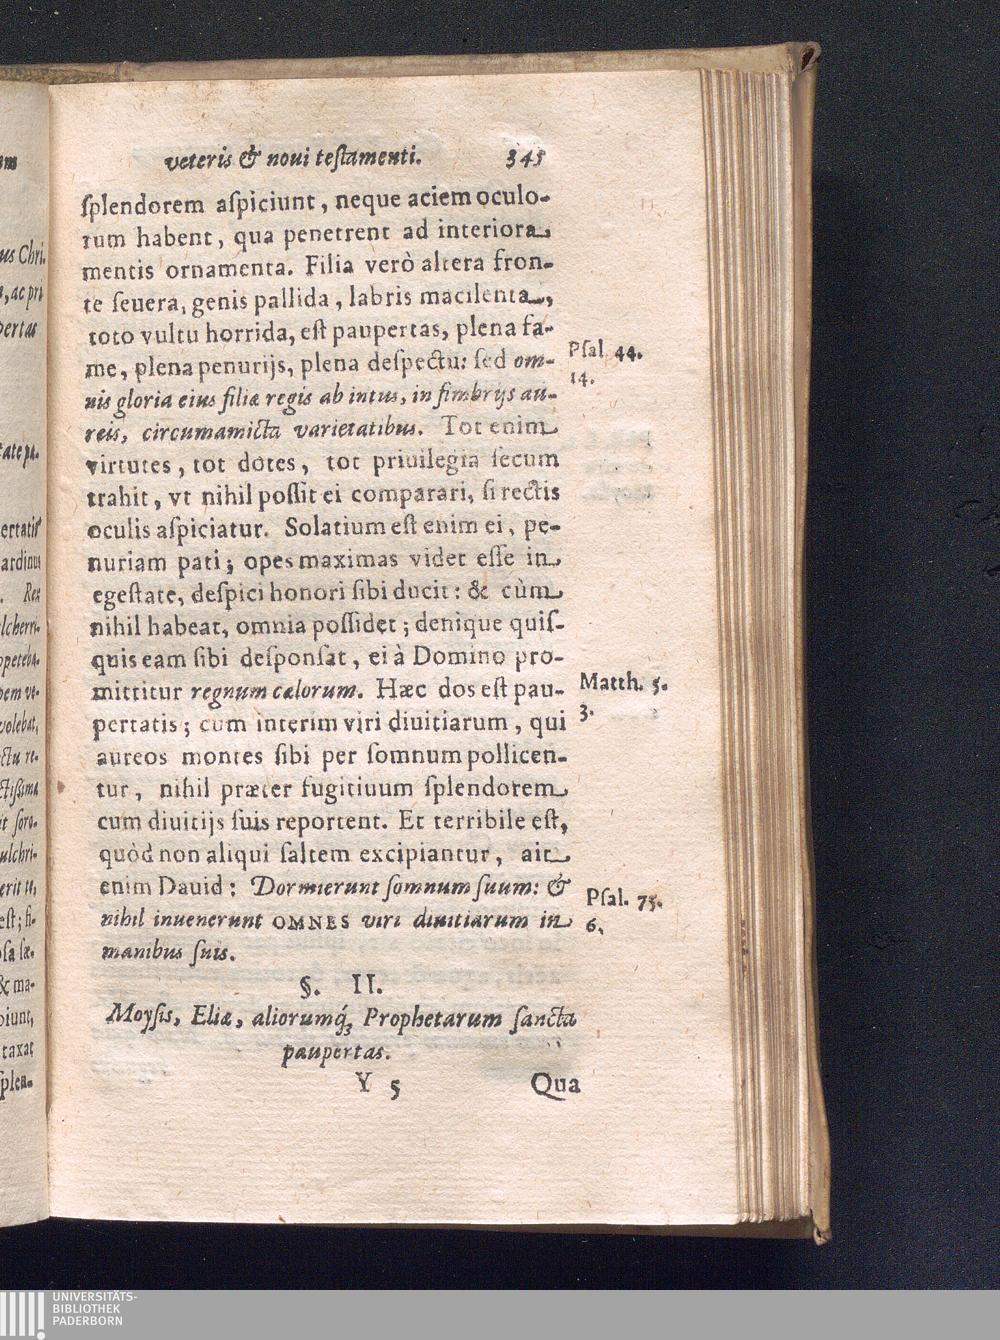 veteris & noui teſtamenti. 345
ſplendorem aſpiciunt, neque aciem oculo-
rum habent, qua penetrent ad interiora
mentis ornamenta. Filia verò altera fron-
te ſeuera, genis pallida, labris macilenta,
toto vultu horrida, eſt paupertas, plena fa-
me, plena penurijs, plena deſpectu: ſed om-
nis gloria eius filiæ regis ab intus, in fimbrijs au-
reis, circumamicta varietatibus. Tot enim
virtutes, tot dotes, tot priuilegia ſecum
trahit, vt nihil poſſit ei comparari, ſi rectis
oculis aſpiciatur. Solatium eſt enim ei, pe-
nuriam pati; opes maximas videt eſſe in
egeſtate, deſpici honori ſibi ducit: & cùm
nihil habeat, omnia poſſidet; denique quiſ-
quis eam ſibi deſponſat, ei à Domino pro-
mittitur regnum cælorum. Hæc dos eſt pau-
pertatis; cum interim viri diuitiarum, qui
aureos montes ſibi per ſomnum pollicen-
tur, nihil præter fugitiuum ſplendorem
cum diuitijs ſuis reportent. Et terribile eſt,
quòd non aliqui ſaltem excipiantur, ait
enim Dauid: Dormierunt ſomnum ſuum: &
nihil inuenerunt OMNES viri diuitiarum in
manibus ſuis.
§. II.
Moyſis, Eliæ, aliorumq́; Prophetarum ſancta
paupertas.
Y 5 Qua
Pſal. 44.
14.
Matth. 5.
3.
Pſal. 75.
6.
us Chri-
, ac pri
pertas
tate pa-
ertatis
ardinus
. Rex
lcherri-
opeteba-
volebat,
ctu re-
ctiſſima
it ſoro-
ulchri-
eſt; ſi-
& ma-
piunt,
taxat
ſplen-
UNIVERSITÄTS-
BIBLIOTHEK
PADERBORN